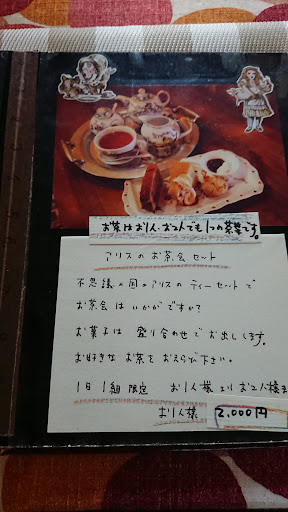 お茶はお1人・お2人でも1つの茶器です。
アリスのお茶会セット
不思議の国のアリスのティーセットで
お茶会はいかがですか?
お菓子は盛り合わせでお出しします。
お好きなお茶をおえらび下さい。
1日1組限定 お1人様よりお2人様ま
お1人様 2,000円